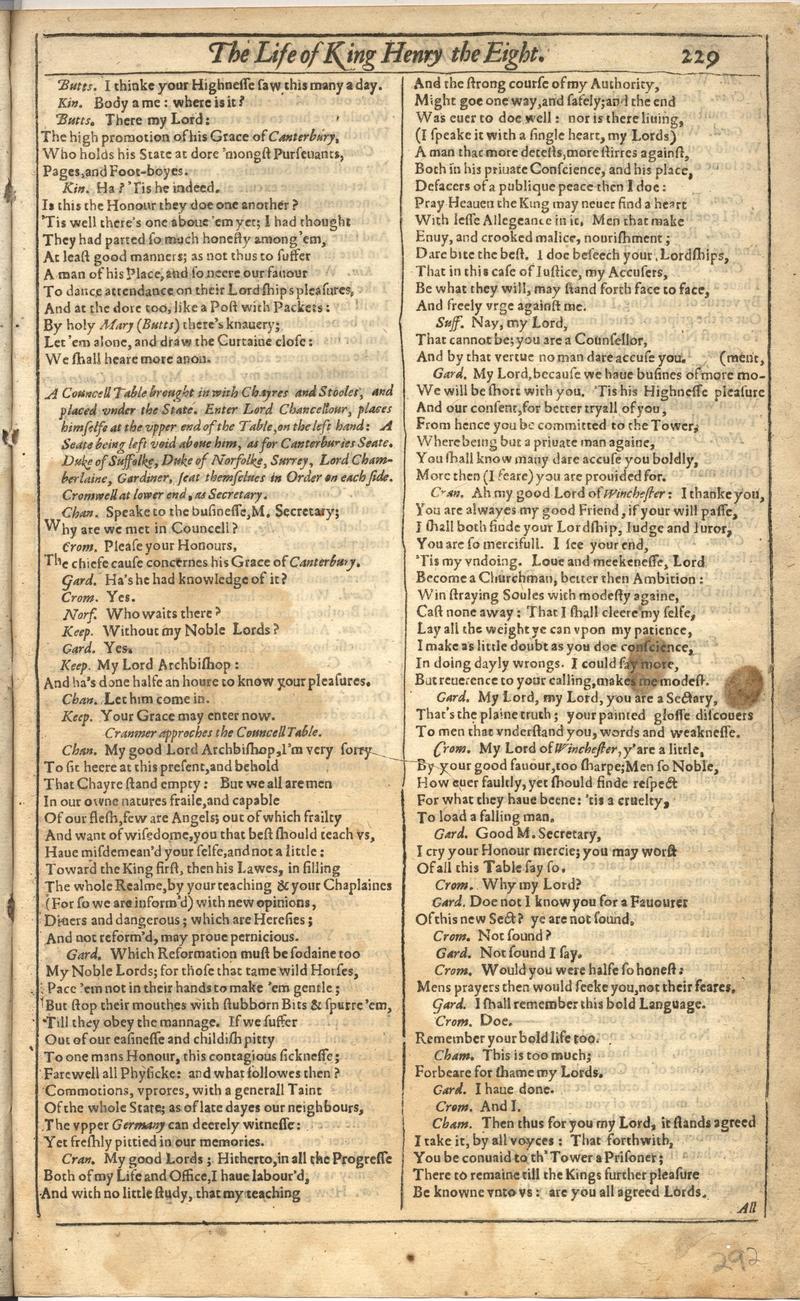 The Life of King Henry the Eight. 229
Butts. I thinke your Highnesse saw this many a day.
Kin. Body a me: where is it?
Butts. There my Lord:
The high promotion of his Grace of Canterbury,
Who holds his State at dore 'mongst Purseuants,
Pages, and Foot-boyes.
Kin. Ha? 'Tis he indeed.
Is this the Honour they doe one another?
'Tis well there's one aboue 'em yet; I had thought
They had parted so much honesty among 'em,
At least good manners; as not thus to suffer
A man of his Place, and so neere our fauour
To dance attendance on their Lordships pleasures,
And at the dore too, like a Post with Packets:
By holy Mary (Butts) there's knauery;
Let 'em alone, and draw the Curtaine close:
We shall heare more anon.
A Councell Table brought in with Chayres and Stooles, and
placed vnder the State. Enter Lord Chancellour, places
himselfe at the vpper end of the Table, on the left hand: A
Seate being left void aboue him, as for Canterburies Seate.
Duke of Suffolke, Duke of Norfolke, Surrey, Lord Cham-
berlaine, Gardiner, seat themselues in Order on each side.
Cromwell at lower end, as Secretary.
Chan. Speake to the businesse, M. Secretary;
Why are we met in Councell?
Crom. Please your Honours,
The chiefe cause concernes his Grace of Canterbury.
Gard. Ha's he had knowledge of it?
Crom. Yes.
Norf. Who waits there?
Keep. Without my Noble Lords?
Gard. Yes.
Keep. My Lord Archbishop:
And ha's done halfe an houre to know your pleasures.
Chan. Let him come in.
Keep. Your Grace may enter now.
Cranmer approches the Councell Table.
Chan. My good Lord Archbishop, I'm very sorry
To sit heere at this present, and behold
That Chayre stand empty: But we all are men
In our owne natures fraile, and capable
Of our flesh, few are Angels; out of which frailty
And want of wisedome, you that best should teach vs,
Haue misdemean'd your selfe, and not a little:
Toward the King first, then his Lawes, in filling
The whole Realme, by your teaching & your Chaplaines
(For so we are inform'd) with new opinions,
Diuers and dangerous; which are Heresies;
And not reform'd, may proue pernicious.
Gard. Which Reformation must be sodaine too
My Noble Lords; for those that tame wild Horses,
Pace 'em not in their hands to make 'em gentle;
But stop their mouthes with stubborn Bits & spurre 'em,
Till they obey the mannage. If we suffer
Out of our easinesse and childish pitty
To one mans Honour, this contagious sicknesse;
Farewell all Physicke: and what followes then?
Commotions, vprores, with a generall Taint
Of the whole State; as of late dayes our neighbours,
The vpper Germany can deerely witnesse:
Yet freshly pittied in our memories.
Cran. My good Lords; Hitherto, in all the Progresse
Both of my Life and Office, I haue labour'd,
And with no little study, that my teaching
And the strong course of my Authority,
Might goe one way, and safely; and the end
Was euer to doe well: nor is there liuing,
(I speake it with a single heart, my Lords)
A man that more detests, more stirres against,
Both in his priuate Conscience, and his place,
Defacers of a publique peace then I doe:
Pray Heauen the King may neuer find a heart
With lesse Allegeance in it. Men that make
Enuy, and crooked malice, nourishment;
Dare bite the best. I doe beseech your, Lordships,
That in this case of Iustice, my Accusers,
Be what they will, may stand forth face to face,
And freely vrge against me.
Suff. Nay, my Lord,
That cannot be; you are a Counsellor,
And by that vertue no man dare accuse you. (ment,
Gard. My Lord, because we haue busines of more mo-
We will be short with you. 'Tis his Highnesse pleasure
And our consent, for better tryall of you,
From hence you be committed to the Tower;
Where being but a priuate man againe,
You shall know many dare accuse you boldly,
More then (I feare) you are prouided for.
Cran. Ah my good Lord of Winchester: I thanke you,
You are alwayes my good Friend, if your will passe,
I shall both finde your Lordship, Iudge and Iuror,
You are so mercifull. I see your end,
'Tis my vndoing. Loue and meekenesse, Lord
Become a Churchman, better then Ambition:
Win straying Soules with modesty againe,
Cast none away: That I shall cleere my selfe,
Lay all the weight ye can vpon my patience,
I make as little doubt as you doe conscience,
In doing dayly wrongs. I could say more,
But reuerence to your calling, makes me modest.
Gard. My Lord, my Lord, you are a Sectary,
That's the plaine truth; your painted glosse discouers
To men that vnderstand you, words and weaknesse.
Crom. My Lord of Winchester, y'are a little,
By your good fauour, too sharpe; Men so Noble,
How euer faultly, yet should finde respect
For what they haue beene: 'tis a cruelty,
To load a falling man.
Gard. Good M. Secretary,
I cry your Honour mercie; you may worst
Of all this Table say so.
Crom. Why my Lord?
Gard. Doe not I know you for a Fauourer
Of this new Sect? ye are not sound.
Crom. Not sound?
Gard. Not sound I say.
Crom. Would you were halfe so honest:
Mens prayers then would seeke you, not their feares.
Gard. I shall remember this bold Language.
Crom. Doe.
Remember your bold life too.
Cham. This is too much;
Forbeare for shame my Lords.
Gard. I haue done.
Crom. And I.
Cham. Then thus for you my Lord, it stands agreed
I take it, by all voyces: That forthwith,
You be conuaid to th' Tower a Prisoner;
There to remaine till the Kings further pleasure
Be knowne vnto vs: are you all agreed Lords.
All
292